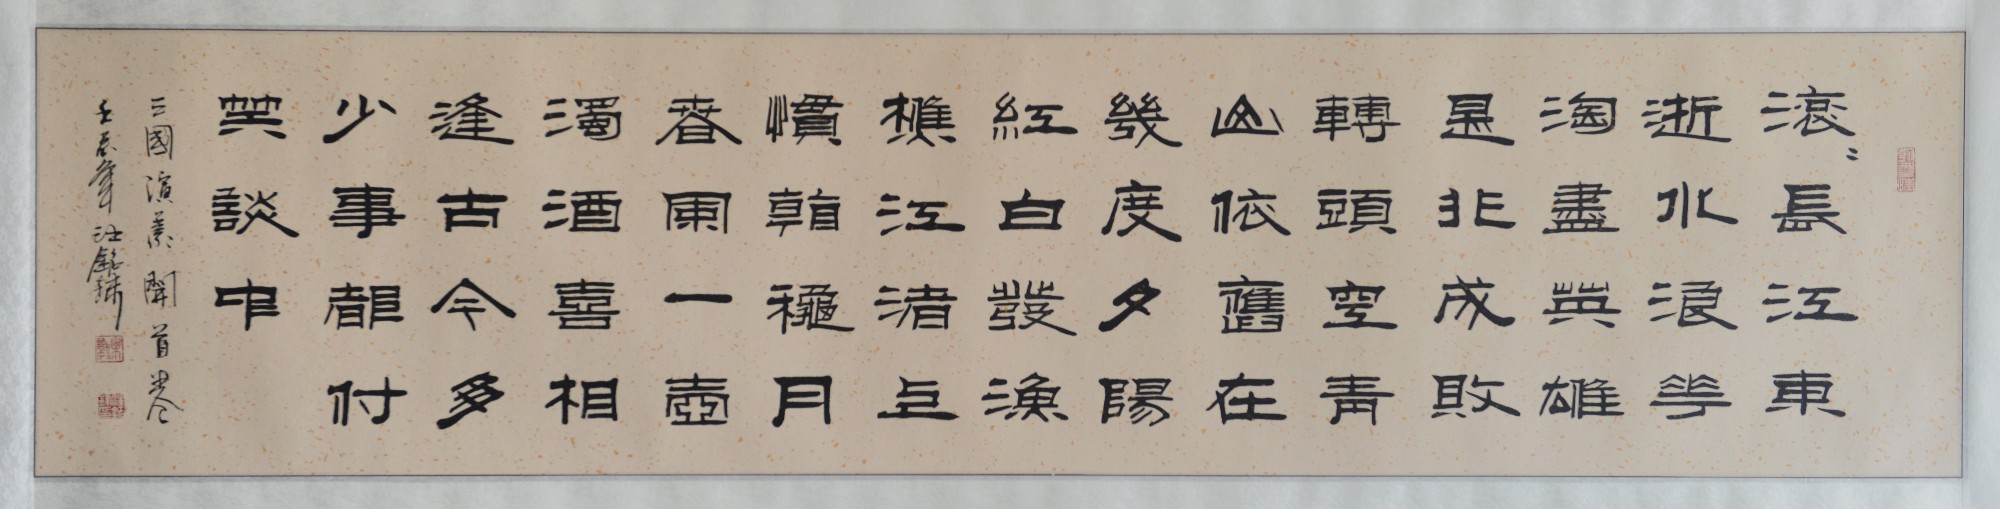 滾〻長江東
逝水浪花
淘盡英雄
是非成敗
轉頭空青
山依舊在
幾度夕陽
紅白發漁
樵江渚上
慣看龝月
春風一壺
濁酒喜相
逢古今多
少事都付
笑談中
三國演義開首卷
壬辰年汪銘